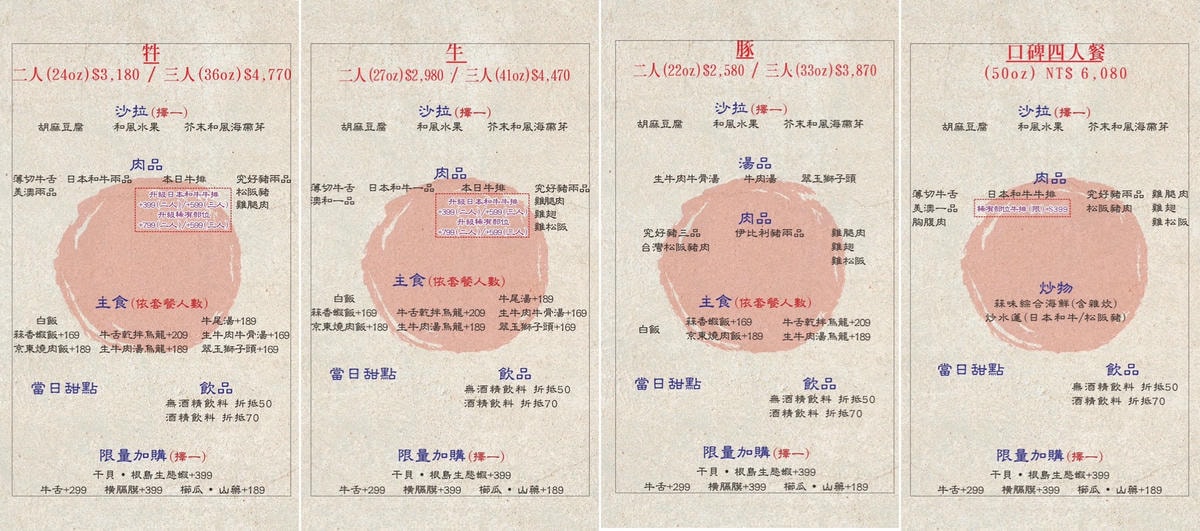 牪
二人(24oz)$3,180 / 三人(36oz)$4,770
沙拉(擇一)
胡麻豆腐 和風水果 芥末和風海帶芽
肉品
薄切牛舌 日本和牛兩品 本日牛排 究好豬兩品
美澳兩品 松阪豬
雞腿肉
升級日本和牛牛排
+399(二人)/+599(三人)
升級稀有部位
+799(二人)/+599(三人)
主食(依套餐人數)
白飯 牛尾湯+189
蒜香蝦飯+169 牛舌乾拌烏龍+209 生牛肉牛骨湯+169
京東燒肉飯+189 生牛肉湯烏龍+189 翠玉獅子頭+169
當日甜點 飲品
無酒精飲料 折抵50
酒精飲料 折抵70
限量加購(擇一)
干貝•根島生態蝦+399
牛舌+299 橫膈膜+399 櫛瓜•山藥+189
牛
二人(27oz)$2,980 / 三人(41oz)$4,470
沙拉(擇一)
胡麻豆腐 和風水果 芥末和風海帶芽
肉品
薄切牛舌 日本和牛一品 本日牛排 究好豬兩品
澳和一品 雞腿肉
雞翅
雞松阪
升級日本和牛牛排
+399(二人)/+599(三人)
升級稀有部位
+799(二人)/+599(三人)
主食(依套餐人數)
白飯 牛尾湯+189
蒜香蝦飯+169 牛舌乾拌烏龍+209 生牛肉牛骨湯+169
京東燒肉飯+189 生牛肉湯烏龍+189 翠玉獅子頭+169
當日甜點 飲品
無酒精飲料 折抵50
酒精飲料 折抵70
限量加購(擇一)
干貝•根島生態蝦+399
牛舌+299 橫膈膜+399 櫛瓜•山藥+189
豚
二人(22oz)$2,580 / 三人(33oz)$3,870
沙拉(擇一)
胡麻豆腐 和風水果 芥末和風海帶芽
湯品
生牛肉牛骨湯 牛肉湯 翠玉獅子頭
肉品
究好豬三品 伊比利豬兩品 雞腿肉
台灣松阪豬肉 雞翅
雞松阪
主食(依套餐人數)
白飯 蒜香蝦飯+169 牛舌乾拌烏龍+209
京東燒肉飯+189 生牛肉湯烏龍+189
當日甜點 飲品
無酒精飲料 折抵50
酒精飲料 折抵70
限量加購(擇一)
干貝•根島生態蝦+399
牛舌+299 橫膈膜+399 櫛瓜•山藥+189
口碑四人餐
(50oz) NT$ 6,080
沙拉(擇一)
胡麻豆腐 和風水果 芥末和風海帶芽
肉品
薄切牛舌 日本和牛牛排 究好豬兩品 雞腿肉
美澳一品 松阪豬肉 雞翅
胸腹肉 雞松阪
稀有部位牛排(限)+$399
炒物
蒜味綜合海鮮(含雜炊)
炒水蓮(日本和牛/松阪豬)
當日甜點 飲品
無酒精飲料 折抵50
酒精飲料 折抵70
限量加購(擇一)
干貝•根島生態蝦+399
牛舌+299 橫膈膜+399 櫛瓜•山藥+189